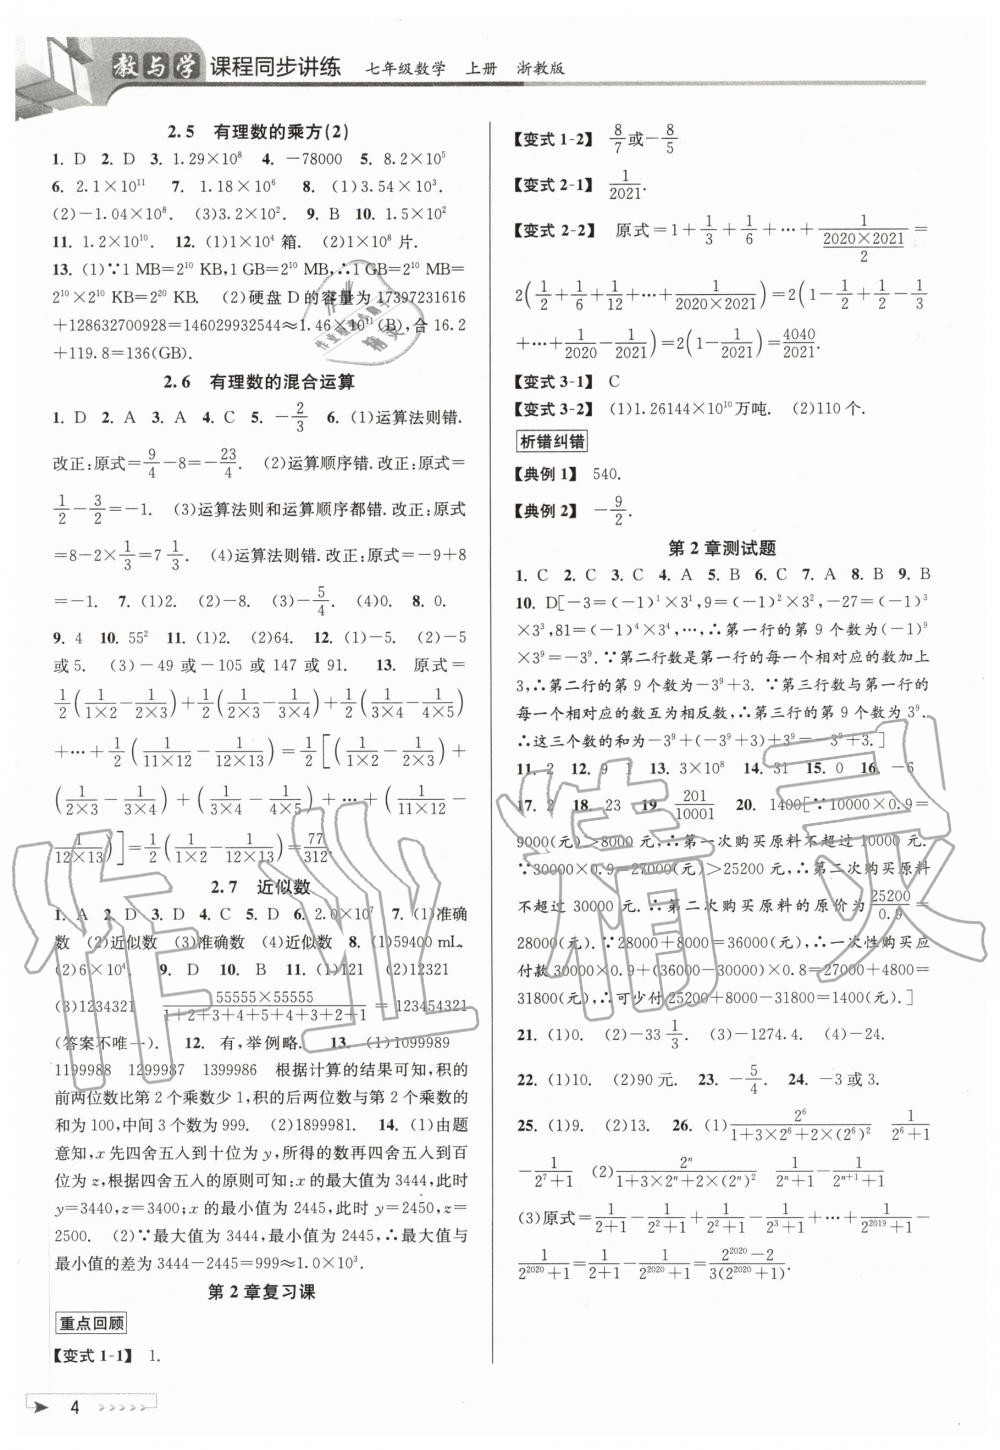 教与学 课程同步讲练 七年级数学 上册 浙教版
2.5 有理数的乘方(2)
1. D 2. D 3. 1.29×10⁸ 4. －78000 5. 8.2×10⁵
6. 2.1×10¹¹ 7. 1.18×10⁶ 8. (1)3.54×10³.
(2)－1.04×10⁸. (3)3.2×10². 9. B 10. 1.5×10²
11. 1.2×10¹⁰. 12. (1)1×10⁴ 箱. (2)1×10⁸ 片.
13. (1)∵1 MB=2¹⁰ KB,1 GB=2¹⁰ MB,∴1 GB=2¹⁰ MB=
2¹⁰×2¹⁰ KB=2²⁰ KB. (2)硬盘 D 的容量为 17397231616
+128632700928=146029932544≈1.46×10¹¹(B),合 16.2
+119.8=136(GB).
2.6 有理数的混合运算
1. D 2. A 3. A 4. C 5. －2/3 6. (1)运算法则错.
改正:原式=9/4－8=－23/4. (2)运算顺序错.改正:原式=
1/2－3/2=－1. (3)运算法则和运算顺序都错.改正:原式
=8－2×1/3=7 1/3. (4)运算法则错.改正:原式=－9+8
=－1. 7. (1)2. (2)－8. (3)－5/4. (4)0. 8. 0.
9. 4 10. 55² 11. (1)2. (2)64. 12. (1)－5. (2)－5
或 5. (3)－49 或－105 或 147 或 91. 13. 原式=
1/2(1/(1×2)－1/(2×3))+1/2(1/(2×3)－1/(3×4))+1/2(1/(3×4)－1/(4×5))
+…+1/2(1/(11×12)－1/(12×13))=1/2[(1/(1×2)－1/(2×3))+
(1/(2×3)－1/(3×4))+(1/(3×4)－1/(4×5))+…+(1/(11×12)－
1/(12×13))]=1/2(1/(1×2)－1/(12×13))=77/312.
2.7 近似数
1. A 2. D 3. D 4. C 5. D 6. 2.0×10⁷ 7. (1)准确
数 (2)近似数 (3)准确数 (4)近似数 8. (1)59400 mL.
(2)6×10⁴. 9. D 10. B 11. (1)121 (2)12321
(3)1234321 (55555×55555)/(1+2+3+4+5+4+3+2+1)=123454321
(答案不唯一). 12. 有,举例略. 13. (1)1099989
1199988 1299987 1399986 根据计算的结果可知,积的
前两位数比第 2 个乘数少 1,积的后两位数与第 2 个乘数的
和为 100,中间 3 个数为 999. (2)1899981. 14. (1)由题
意知,x 先四舍五入到十位为 y,所得的数再四舍五入到百
位为 z,根据四舍五入的原则可知:x 的最大值为 3444,此时
y=3440,z=3400;x 的最小值为 2445,此时 y=2450,z=
2500. (2)∵最大值为 3444,最小值为 2445,∴最大值与
最小值的差为 3444－2445=999≈1.0×10³.
第 2 章复习课
重点回顾
【变式 1-1】 1.
4
【变式 1-2】 8/7或－8/5
【变式 2-1】 1/2021.
【变式 2-2】 原式=1+1/3+1/6+…+1/((2020×2021)/2)=
2(1/2+1/6+1/12+…+1/(2020×2021))=2(1－1/2+1/2－1/3
+…+1/2020－1/2021)=2(1－1/2021)=4040/2021.
【变式 3-1】 C
【变式 3-2】 (1)1.26144×10¹⁰万吨. (2)110 个.
析错纠错
【典例 1】 540.
【典例 2】 －9/2.
第 2 章测试题
1. C 2. C 3. C 4. A 5. B 6. C 7. A 8. B 9. B
10. D[－3=(－1)¹×3¹,9=(－1)²×3²,－27=(－1)³
×3³,81=(－1)⁴×3⁴,…,∴第一行的第 9 个数为(－1)⁹
×3⁹=－3⁹. ∵第二行数是第一行的每一个相对应的数加上
3,∴第二行的第 9 个数为－3⁹+3. ∵第三行数与第一行的
每一个相对应的数互为相反数,∴第三行的第 9 个数为 3⁹.
∴这三个数的和为－3⁹+(－3⁹+3)+3⁹=－3⁹+3.]
11. 2 12. 9 1 13. 3×10⁸ 14. 31 15. 0 16. －6
17. 2 18. 23 19. 201/10001 20. 1400[∵10000×0.9=
9000(元)>8000 元,∴第一次购买原料不超过 10000 元.
∵30000×0.9=27000(元)>25200 元,∴第二次购买原料
不超过 30000 元.∴第二次购买原料的原价为25200/0.9=
28000(元). ∵28000+8000=36000(元),∴一次性购买应
付款 30000×0.9+(36000－30000)×0.8=27000+4800=
31800(元),∴可少付 25200+8000－31800=1400(元).]
21. (1)0. (2)－33 1/3. (3)－1274.4. (4)－24.
22. (1)10. (2)90 元. 23. －5/4. 24. －3 或 3.
25. (1)9. (2)13. 26. (1)2⁶/(1+3×2⁶+2×(2⁶)²) 1/(2⁶+1)
－1/(2⁷+1) (2)2ⁿ/(1+3×2ⁿ+2×(2ⁿ)²) 1/(2ⁿ+1)－1/(2ⁿ⁺¹+1)
(3)原式=1/(2+1)－1/(2²+1)+1/(2²+1)－1/(2³+1)+…+1/(2²⁰¹⁹+1)－
1/(2²⁰²⁰+1)=1/(2+1)－1/(2²⁰²⁰+1)=(2²⁰²⁰－2)/(3(2²⁰²⁰+1)).
作业精灵